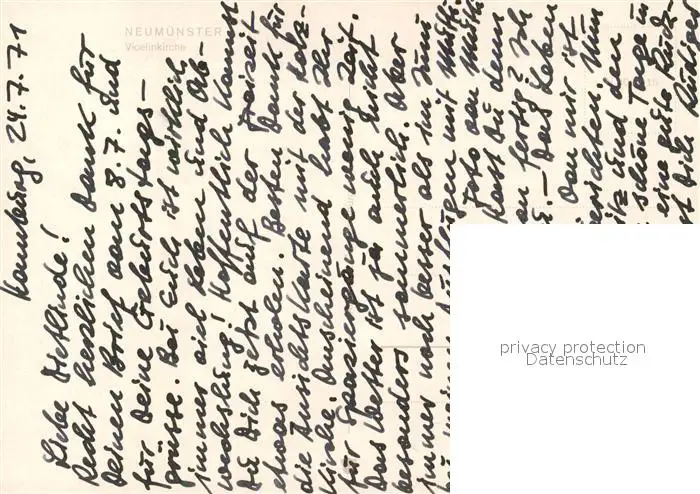 NEUMÜNSTER
Vicelinkirche
Hamburg, 24.7.71
Liebe Dietlinde!
Recht herzlichen Dank für
Deinen Brief vom 8.7. und
für Deine Geburtstags-
grüsse. Bei Euch ist wirklich
immer viel Leben und Ab-
wechslung! Hoffentlich kannst
Du Dich jetzt auf der Freizeit
etwas erholen. Besten Dank für
die Ansichtskarte mit der Holz-
kirche. Anscheinend habt Ihr
für Spaziergänge wenig Zeit.
Das Wetter ist ja auch nicht
besonders sommerlich. Aber
immer noch besser als im Juni
Ausflügen mit
Foto von
Hast Du denn
fertig? Ich
Das Leben
Von mir ist
berichten. Nun
und den
schöne Tage in
eine gute Rück-
Dich
privacy protection
Datenschutz